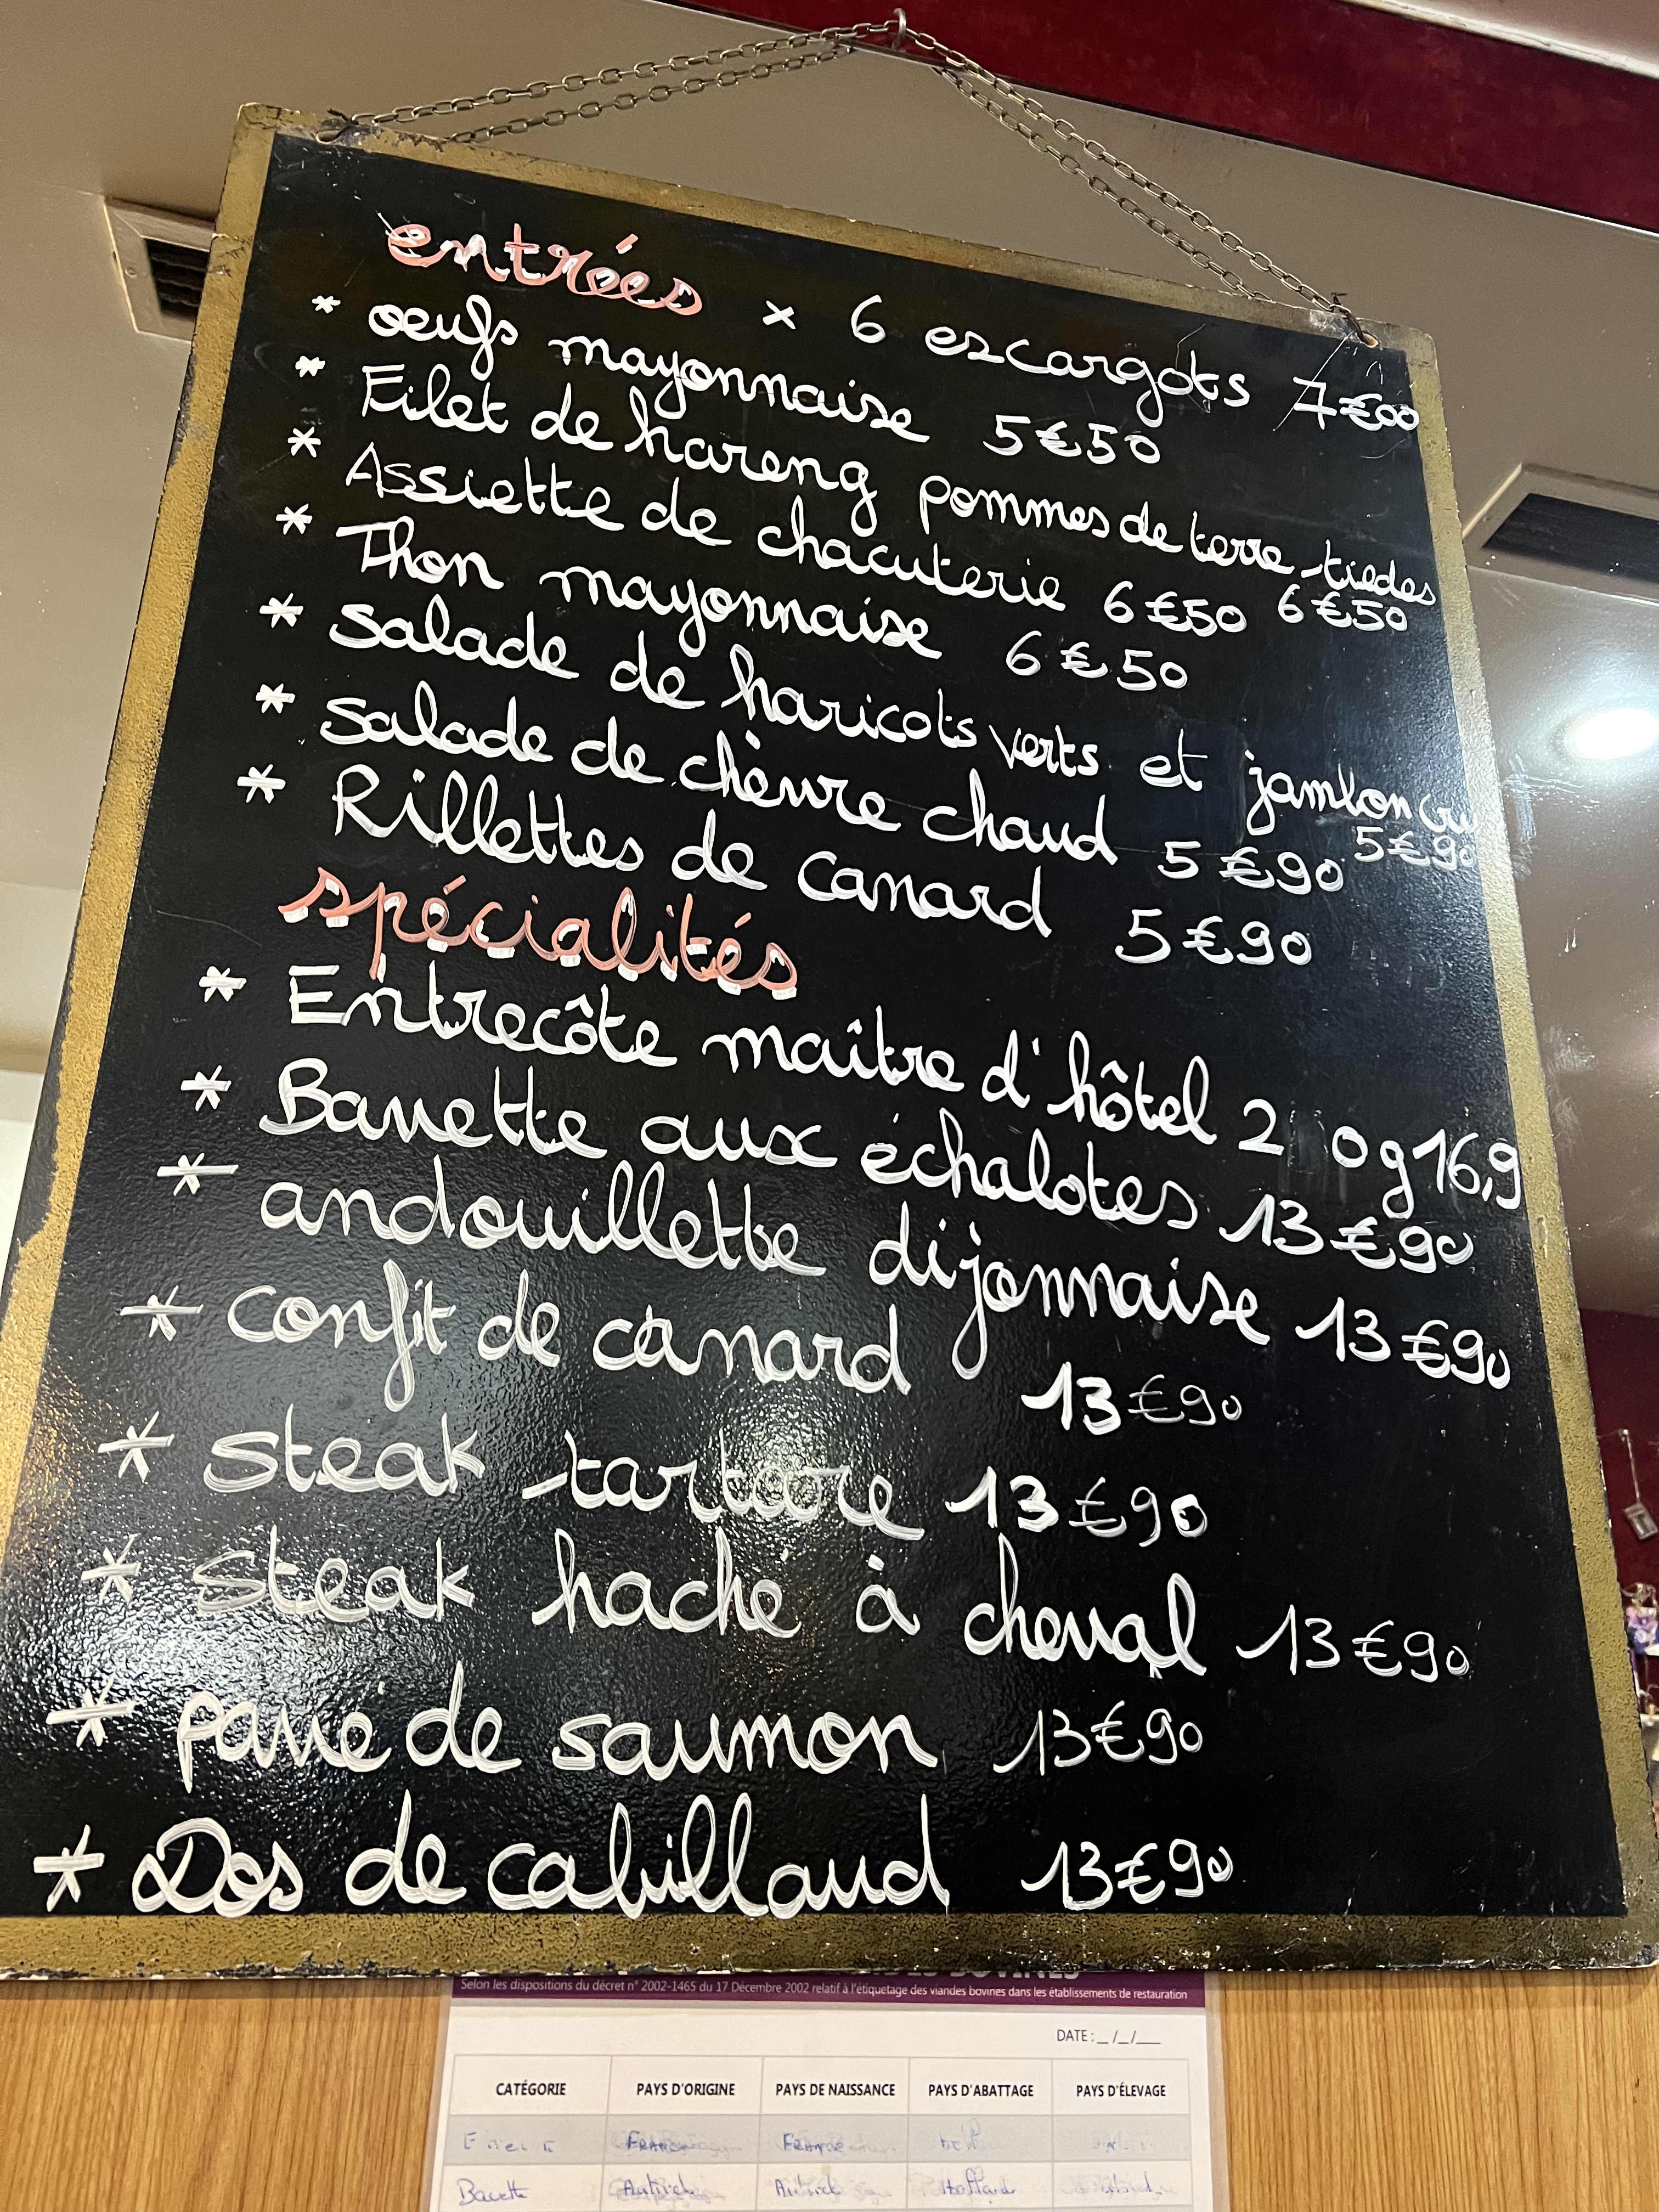 entrées × 6 escargots 7€00
* oeufs mayonnaise 5€50
* Filet de hareng pommes de terre tiedes 6€50
* Assiette de chacuterie 6€50
* Thon mayonnaise 6€50
* salade de haricots verts et jambon cru 5€90
* salade de chèvre chaud 5€90
* Rillettes de canard 5€90
spécialités
* Entrecôte maître d'hôtel 2 0g 16,9
* Bavette aux échalotes 13€90
* andouillette dijonnaise 13€90
* confit de canard 13€90
* steak tartare 13€90
* steak haché à cheval 13€90
* pavé de saumon 13€90
* Dos de cabillaud 13€90
BOVINES
Selon les dispositions du décret n° 2002-1465 du 17 Décembre 2002 relatif à l'étiquetage des viandes bovines dans les établissements de restauration
DATE : _/_/__
CATÉGORIE PAYS D'ORIGINE PAYS DE NAISSANCE PAYS D'ABATTAGE PAYS D'ÉLEVAGE
FRANCE FRANCE
Bavette